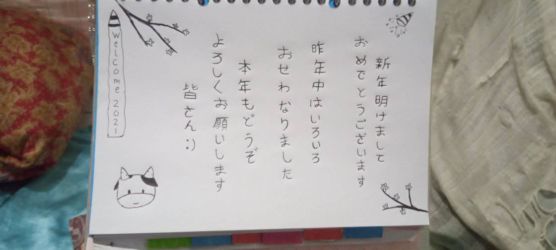 新年明けまして
おめでとうございます
昨年中はいろいろ
おせわなりました
本年もどうぞ
よろしくお願いします
皆さん:)
welcome 2021